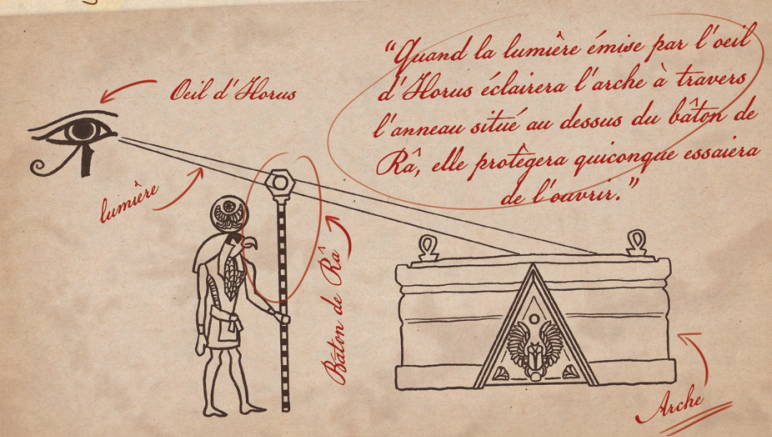 "Quand la lumière émise par l'oeil
d'Horus éclairera l'arche à travers
l'anneau situé au dessus du bâton de
Râ, elle protègera quiconque essaiera
de l'ouvrir."
Oeil d'Horus
lumière
Bâton de Râ
Arche